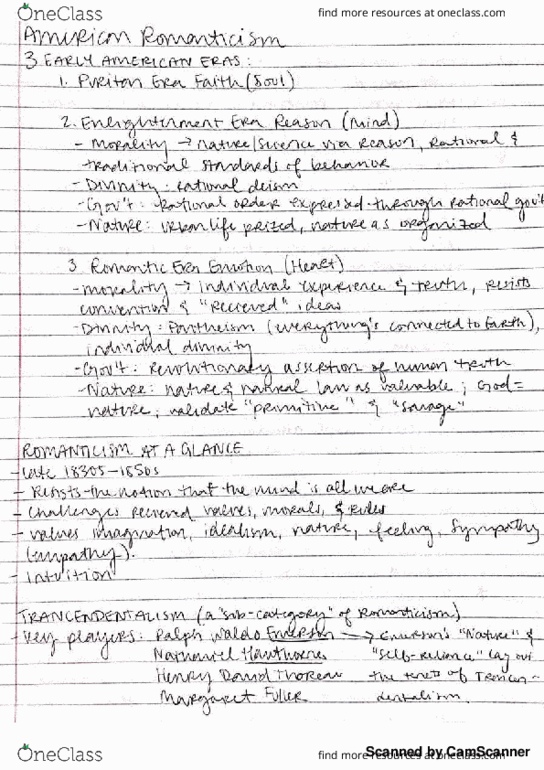 OneClass
find more resources at oneclass.com
American Romanticism
3 EARLY AMERICAN ERAS:
1. Puritan Era Faith (Soul)
2. Enlightenment Era Reason (Mind)
- Morality → nature/science via reason, rational &
traditional standards of behavior
- Divinity: rational deism
- Gov't: rational order expressed through rational gov't
- Nature: urban life prized, nature as organized
3. Romantic Era Emotion (Heart)
- Morality → individual experience & truth, resists
convention & "Recieved" ideas
- Divinity: Pantheism (everything's connected to Earth),
individual divinity
- Gov't: Revolutionary assertion of human truth
- Nature: nature & natural law as valuable; God=
nature; validate "primitive" & "savage"
ROMANTICISM AT A GLANCE
- Late 1830s-1850s
- Resists the notion that the mind is all we are
- Challenges recieved values, morals, & rules
- values imagination, idealism, nature, feeling, sympathy
(empathy).
- Intuition
TRANCENDENTALISM (a "sub-category" of Romanticism)
- Key players: Ralph Waldo Emerson → Emerson's "Nature" &
Nathaniel Hawthorne "Self-Reliance" lay out
Henry David Thoreau the tenets of Transcen-
Margaret Fuller dentalism.
OneClass
find more resources at oneclass.com
Scanned by CamScanner